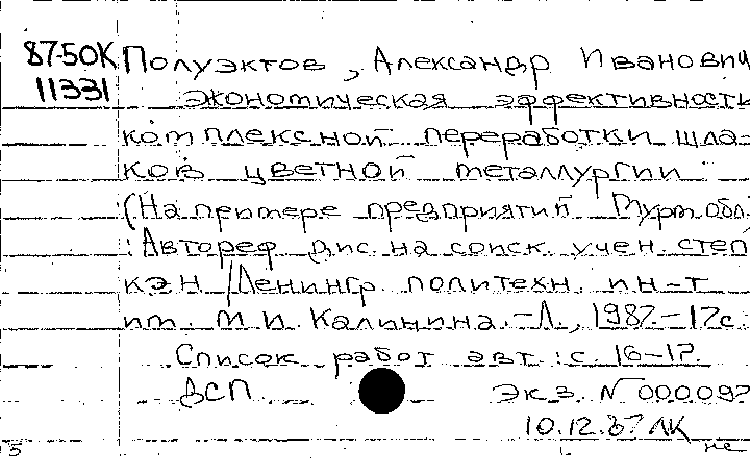 87-50К Полуэктов, Александр Иванович
11331 Экономическая эффективность
комплексной переработки шла-
ков цветной металлургии
(На примере предприятий Мурм. обл.
: Автореф дис. на соиск. учен. степ
к э н / Ленингр. политехн. ин-т
им. М. И. Калинина. - Л., 1987. - 17 с.
Список работ авт.: с. 16-17.
ДСП Экз. N 000097
10.12.87 ЛК
5 не